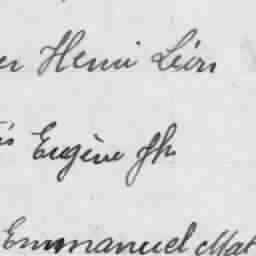 er Henri Léon
is Eugène Jh
Emmanuel Mat